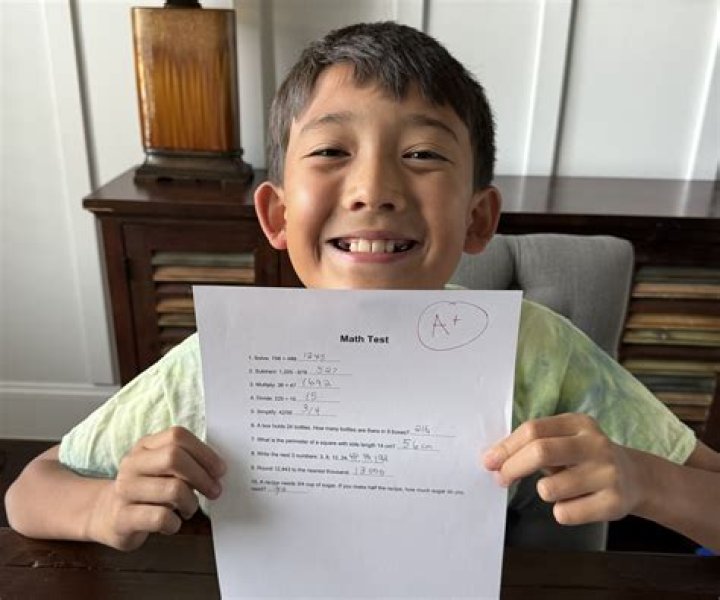 A+
Math Test
1. Solve: 756 + 489 1245
2. Subtract: 1,205 - 678 527
3. Multiply: 36 × 47 1692
4. Divide: 225 ÷ 15 15
5. Simplify: 42/56 3/4
6. A box holds 24 bottles. How many bottles are there in 9 boxes? 216
7. What is the perimeter of a square with side length 14 cm? 56 cm
8. Write the next 3 numbers: 3, 6, 12, 24, 48 96 192
9. Round 12,843 to the nearest thousand. 13000
10. A recipe needs 3/4 cup of sugar. If you make half the recipe, how much sugar do you
need?